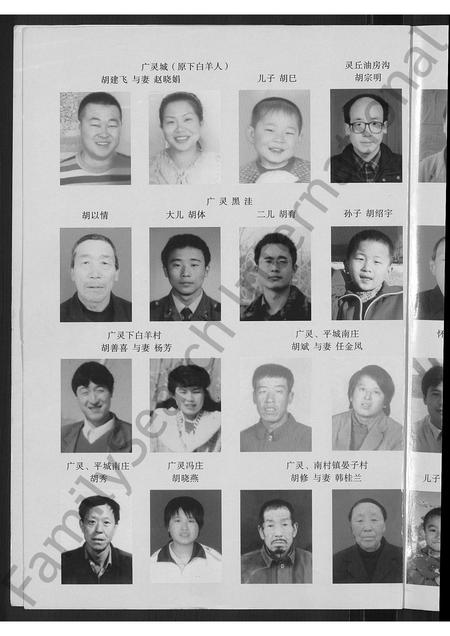 广灵城（原下白羊人）
胡建飞 与妻 赵晓娟
儿子 胡巳
灵丘油房沟
胡宗明
广 灵 黑 洼
胡以情
大儿 胡体
二儿 胡育
孙子 胡绍宇
广灵下白羊村
胡善喜 与妻 杨芳
广灵、平城南庄
胡斌 与妻 任金凤
怀
广灵、平城南庄
胡秀
广灵冯庄
胡晓燕
广灵、南村镇晏子村
胡修 与妻 韩桂兰
儿子
FamilySearch International